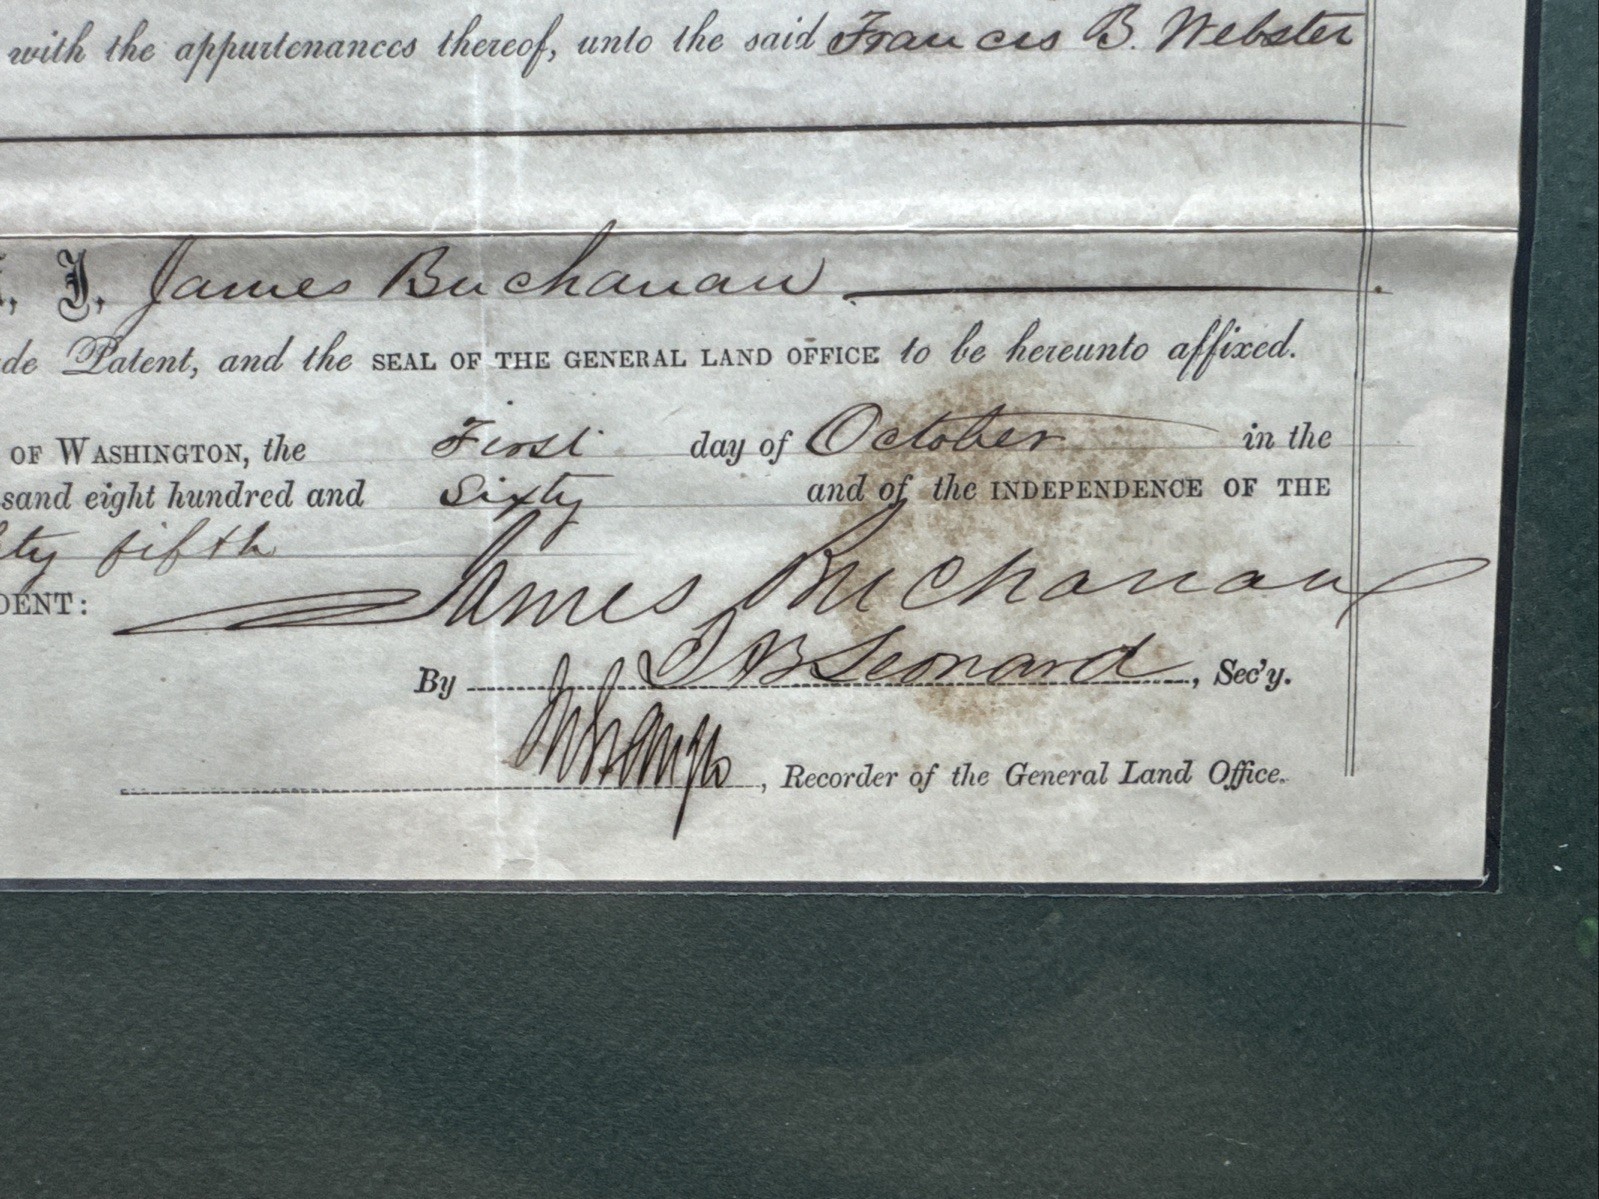 with the appurtenances thereof, unto the said Francis B. Webster
I, James Buchanan
Patent, and the SEAL OF THE GENERAL LAND OFFICE to be hereunto affixed.
OF WASHINGTON, the First day of October in the
sand eight hundred and Sixty and of the INDEPENDENCE OF THE
ty fifth
DENT: James Buchanan
By J. B. Leonard, Sec'y.
, Recorder of the General Land Office.